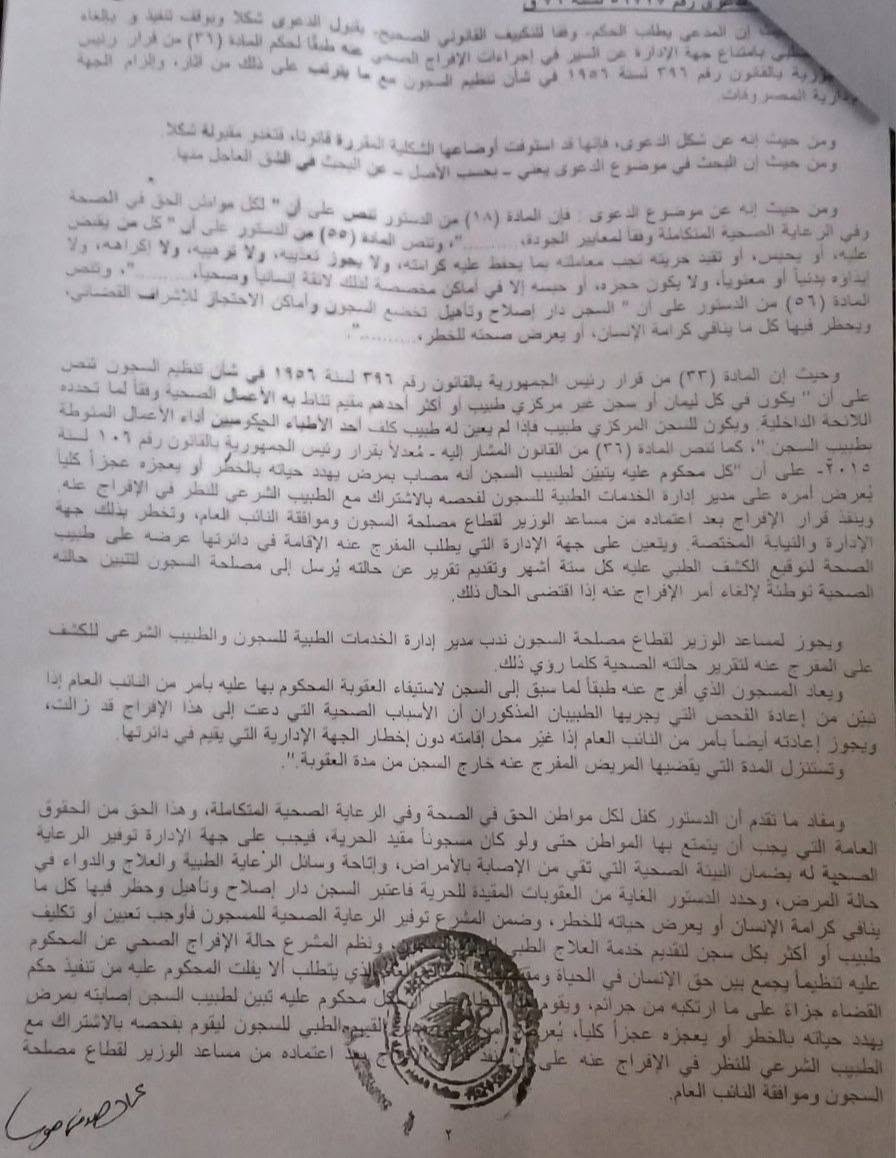 حيث إن المدعي يطلب الحكم، وفقاً للتكييف القانوني الصحيح، بقبول الدعوى شكلا وبوقف تنفيذ و بإلغاء
بامتناع جهة الإدارة عن السير في إجراءات الإفراج الصحي عنه طبقاً لحكم المادة (٣٦) من قرار رئيس
بالقانون رقم ٣٩٦ لسنة ١٩٥٦ في شأن تنظيم السجون مع ما يترتب على ذلك من آثار، وإلزام الجهة
المصروفات.
ومن حيث إنه عن شكل الدعوى، فإنها قد استوفت أوضاعها الشكلية المقررة قانونا، فتغدو مقبولة شكلا.
ومن حيث إن البحث في موضوع الدعوى يغني – بحسب الأصل – عن البحث في الشق العاجل منها.
ومن حيث إنه عن موضوع الدعوى : فإن المادة (١٨) من الدستور تنص على أن " لكل مواطن الحق في الصحة
وفي الرعاية الصحية المتكاملة وفقاً لمعايير الجودة، ..........."، وتنص المادة (٥٥) من الدستور على أن " كل من يقبض
عليه، أو يحبس، أو تقيد حريته تجب معاملته بما يحفظ عليه كرامته، ولا يجوز تعذيبه، ولا ترهيبه، ولا إكراهه، ولا
إيذاؤه بدنياً أو معنوياً، ولا يكون حجزه، أو حبسه إلا في أماكن مخصصة لذلك لائقة إنسانياً وصحياً، ..........."، وتنص
المادة (٥٦) من الدستور على أن " السجن دار إصلاح وتأهيل تخضع السجون وأماكن الاحتجاز للإشراف القضائي،
ويحظر فيها كل ما ينافي كرامة الإنسان، أو يعرض صحته للخطر، ...........".
وحيث إن المادة (٣٣) من قرار رئيس الجمهورية بالقانون رقم ٣٩٦ لسنة ١٩٥٦ في شأن تنظيم السجون تنص
على أن " يكون في كل ليمان أو سجن غير مركزي طبيب أو أكثر أحدهم مقيم تناط به الأعمال الصحية وفقاً لما تحدده
اللائحة الداخلية. ويكون للسجن المركزي طبيب فإذا لم يعين له طبيب كلف أحد الأطباء الحكوميين أداء الأعمال المنوطة
بطبيب السجن "، كما تنص المادة (٣٦) من القانون المشار إليه - مُعدلاً بقرار رئيس الجمهورية بالقانون رقم ١٠٦ لسنة
٢٠١٥- على أن "كل محكوم عليه يتبيّن لطبيب السجن أنه مصاب بمرض يهدد حياته بالخطر أو يعجزه عجزاً كلياً
يُعرض أمره على مدير إدارة الخدمات الطبية للسجون لفحصه بالاشتراك مع الطبيب الشرعي للنظر في الإفراج عنه.
وينفذ قرار الإفراج بعد اعتماده من مساعد الوزير لقطاع مصلحة السجون وموافقة النائب العام، وتخطر بذلك جهة
الإدارة والنيابة المختصة. ويتعين على جهة الإدارة التي يطلب المفرج عنه الإقامة في دائرتها عرضه على طبيب
الصحة لتوقيع الكشف الطبي عليه كل ستة أشهر وتقديم تقرير عن حالته يُرسل إلى مصلحة السجون لتتبين حالته
الصحية توطئةً لإلغاء أمر الإفراج عنه إذا اقتضى الحال ذلك.
ويجوز لمساعد الوزير لقطاع مصلحة السجون ندب مدير إدارة الخدمات الطبية للسجون والطبيب الشرعي للكشف
على المفرج عنه لتقرير حالته الصحية كلما رؤي ذلك.
ويعاد المسجون الذي أفرج عنه طبقاً لما سبق إلى السجن لاستيفاء العقوبة المحكوم بها عليه بأمر من النائب العام إذا
تبيّن من إعادة الفحص التي يجريها الطبيبان المذكوران أن الأسباب الصحية التي دعت إلى هذا الإفراج قد زالت،
ويجوز إعادته أيضاً بأمر من النائب العام إذا غيّر محل إقامته دون إخطار الجهة الإدارية التي يقيم في دائرتها.
وتستنزل المدة التي يقضيها المريض المفرج عنه خارج السجن من مدة العقوبة.".
ومفاد ما تقدم أن الدستور كفل لكل مواطن الحق في الصحة وفي الرعاية الصحية المتكاملة، وهذا الحق من الحقوق
العامة التي يجب أن يتمتع بها المواطن حتى ولو كان مسجوناً مقيد الحرية، فيجب على جهة الإدارة توفير الرعاية
الصحية له بضمان البيئة الصحية التي تقي من الإصابة بالأمراض، وإتاحة وسائل الرعاية الطبية والعلاج والدواء في
حالة المرض، وحدد الدستور الغاية من العقوبات المقيدة للحرية فاعتبر السجن دار إصلاح وتأهيل وحظر فيها كل ما
ينافي كرامة الإنسان أو يعرض حياته للخطر، وضمن المشرع توفير الرعاية الصحية للمسجون فأوجب تعيين أو تكليف
طبيب أو أكثر بكل سجن لتقديم خدمة العلاج الطبي ونظم المشرع حالة الإفراج الصحي عن المحكوم
عليه تنظيماً يجمع بين حق الإنسان في الحياة الذي يتطلب ألا يفلت المحكوم عليه من تنفيذ حكم
القضاء جزاءً على ما ارتكبه من جرائم، ويقوم كل محكوم عليه تبين لطبيب السجن إصابته بمرض
يهدد حياته بالخطر أو يعجزه عجزاً كلياً، يُعرض القسم الطبي للسجون ليقوم بفحصه بالاشتراك مع
الطبيب الشرعي للنظر في الإفراج عنه على بعد اعتماده من مساعد الوزير لقطاع مصلحة
السجون وموافقة النائب العام.
٢